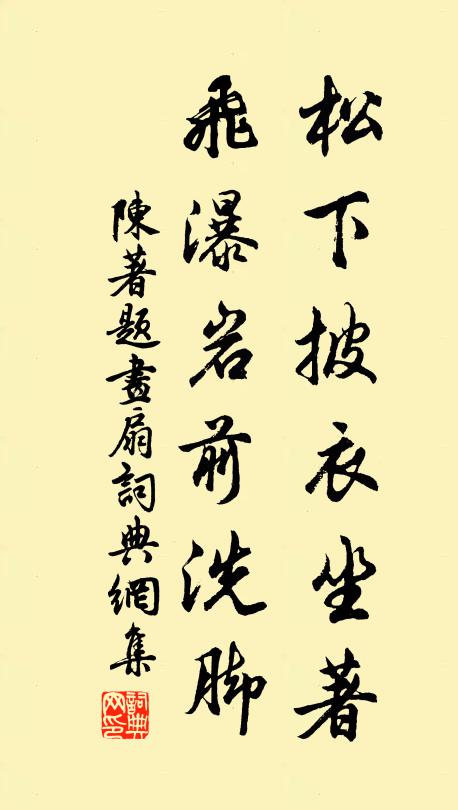 松下披衣坐著
飛瀑岩前洗脚
陳著題畫扇詞典網集
詞典网印